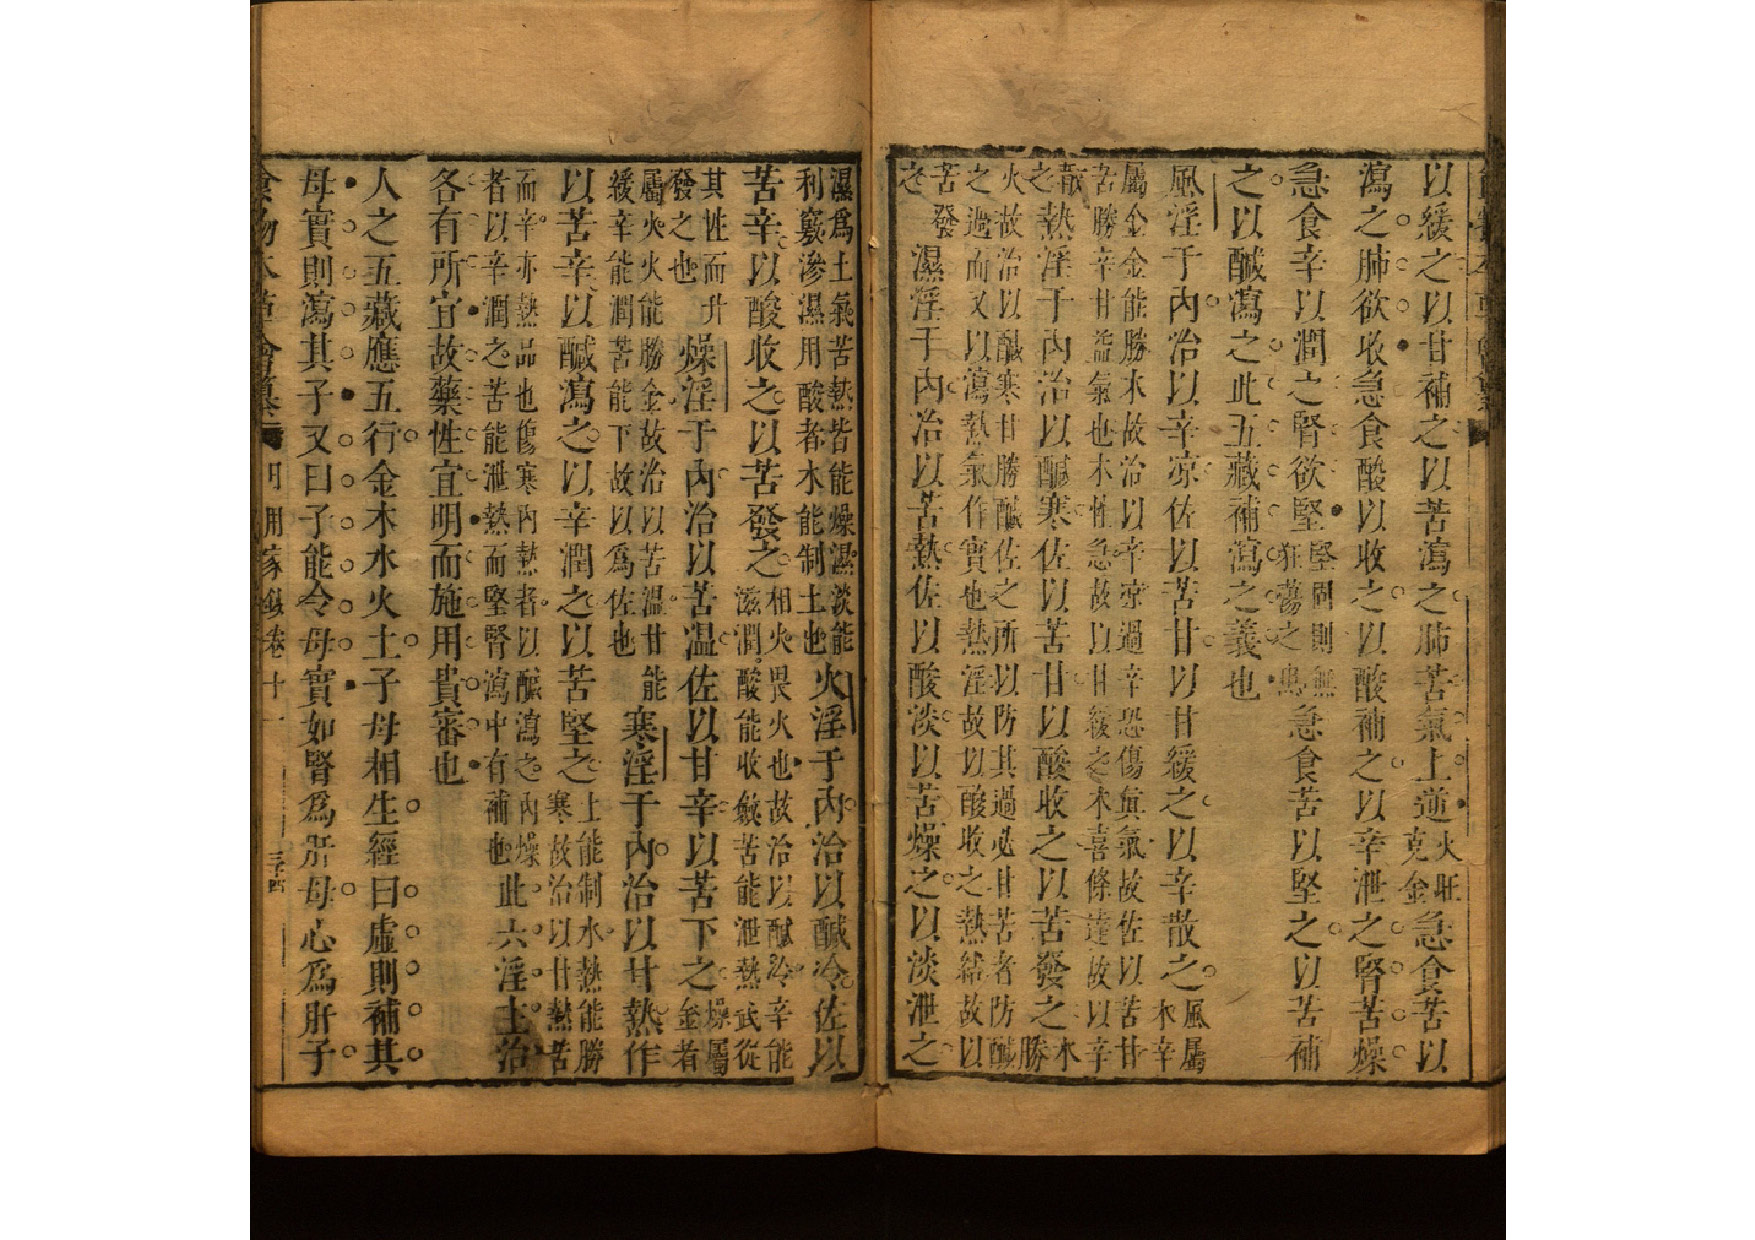 以緩之以甘補之以苦瀉之肺苦氣上逆火旺克金急食苦以
瀉之肺欲收急食酸以收之以酸補之以辛泄之腎苦燥
急食辛以潤之腎欲堅堅固則無狂蕩之患急食苦以堅之以苦補
之以醎瀉之此五藏補瀉之義也
風淫于內治以辛凉佐以苦甘以甘緩之以辛散之風屬木辛
屬金金能勝木故治以辛凉過辛恐傷眞氣故佐以苦甘
苦勝辛甘益氣也木性急故以甘緩之木喜條達故以辛
散之熱淫于內治以醎寒佐以苦甘以酸收之以苦發之水勝
火故治以醎寒甘勝醎佐之所以防其過必甘苦者防醎
之過而又以瀉熱氣作實也熱淫故以酸收之熱結故以
苦發之濕淫于內治以苦熱佐以酸淡以苦燥之以淡泄之
濕爲土氣苦熱皆能燥濕淡能
利竅滲濕用酸者木能制土也火淫于內治以醎冷佐以
苦辛以酸收之以苦發之相火畏火也故治以醎冷辛能
滋潤酸能收斂苦能泄熱或從
其性而升發之也燥淫于內治以苦温佐以甘辛以苦下之燥屬金者
屬火火能勝金故治以苦溫甘能
緩辛能潤苦能下故以爲佐也寒淫于內治以甘熱佐
以苦辛以醎瀉之以辛潤之以苦堅之土能制水熱能勝
寒故治以甘熱苦
而辛亦熱品也傷寒內熱者以醎瀉之內燥
者以辛潤之苦能泄熱而堅腎瀉中有補也此六淫主治
各有所宜故藥性宜明而施用貴審也
人之五藏應五行金木水火土子母相生經曰虛則補其
母實則瀉其子又曰子能令母實如腎爲肝母心爲肝子
食物本草會纂
日用家鈔卷十一
三十四